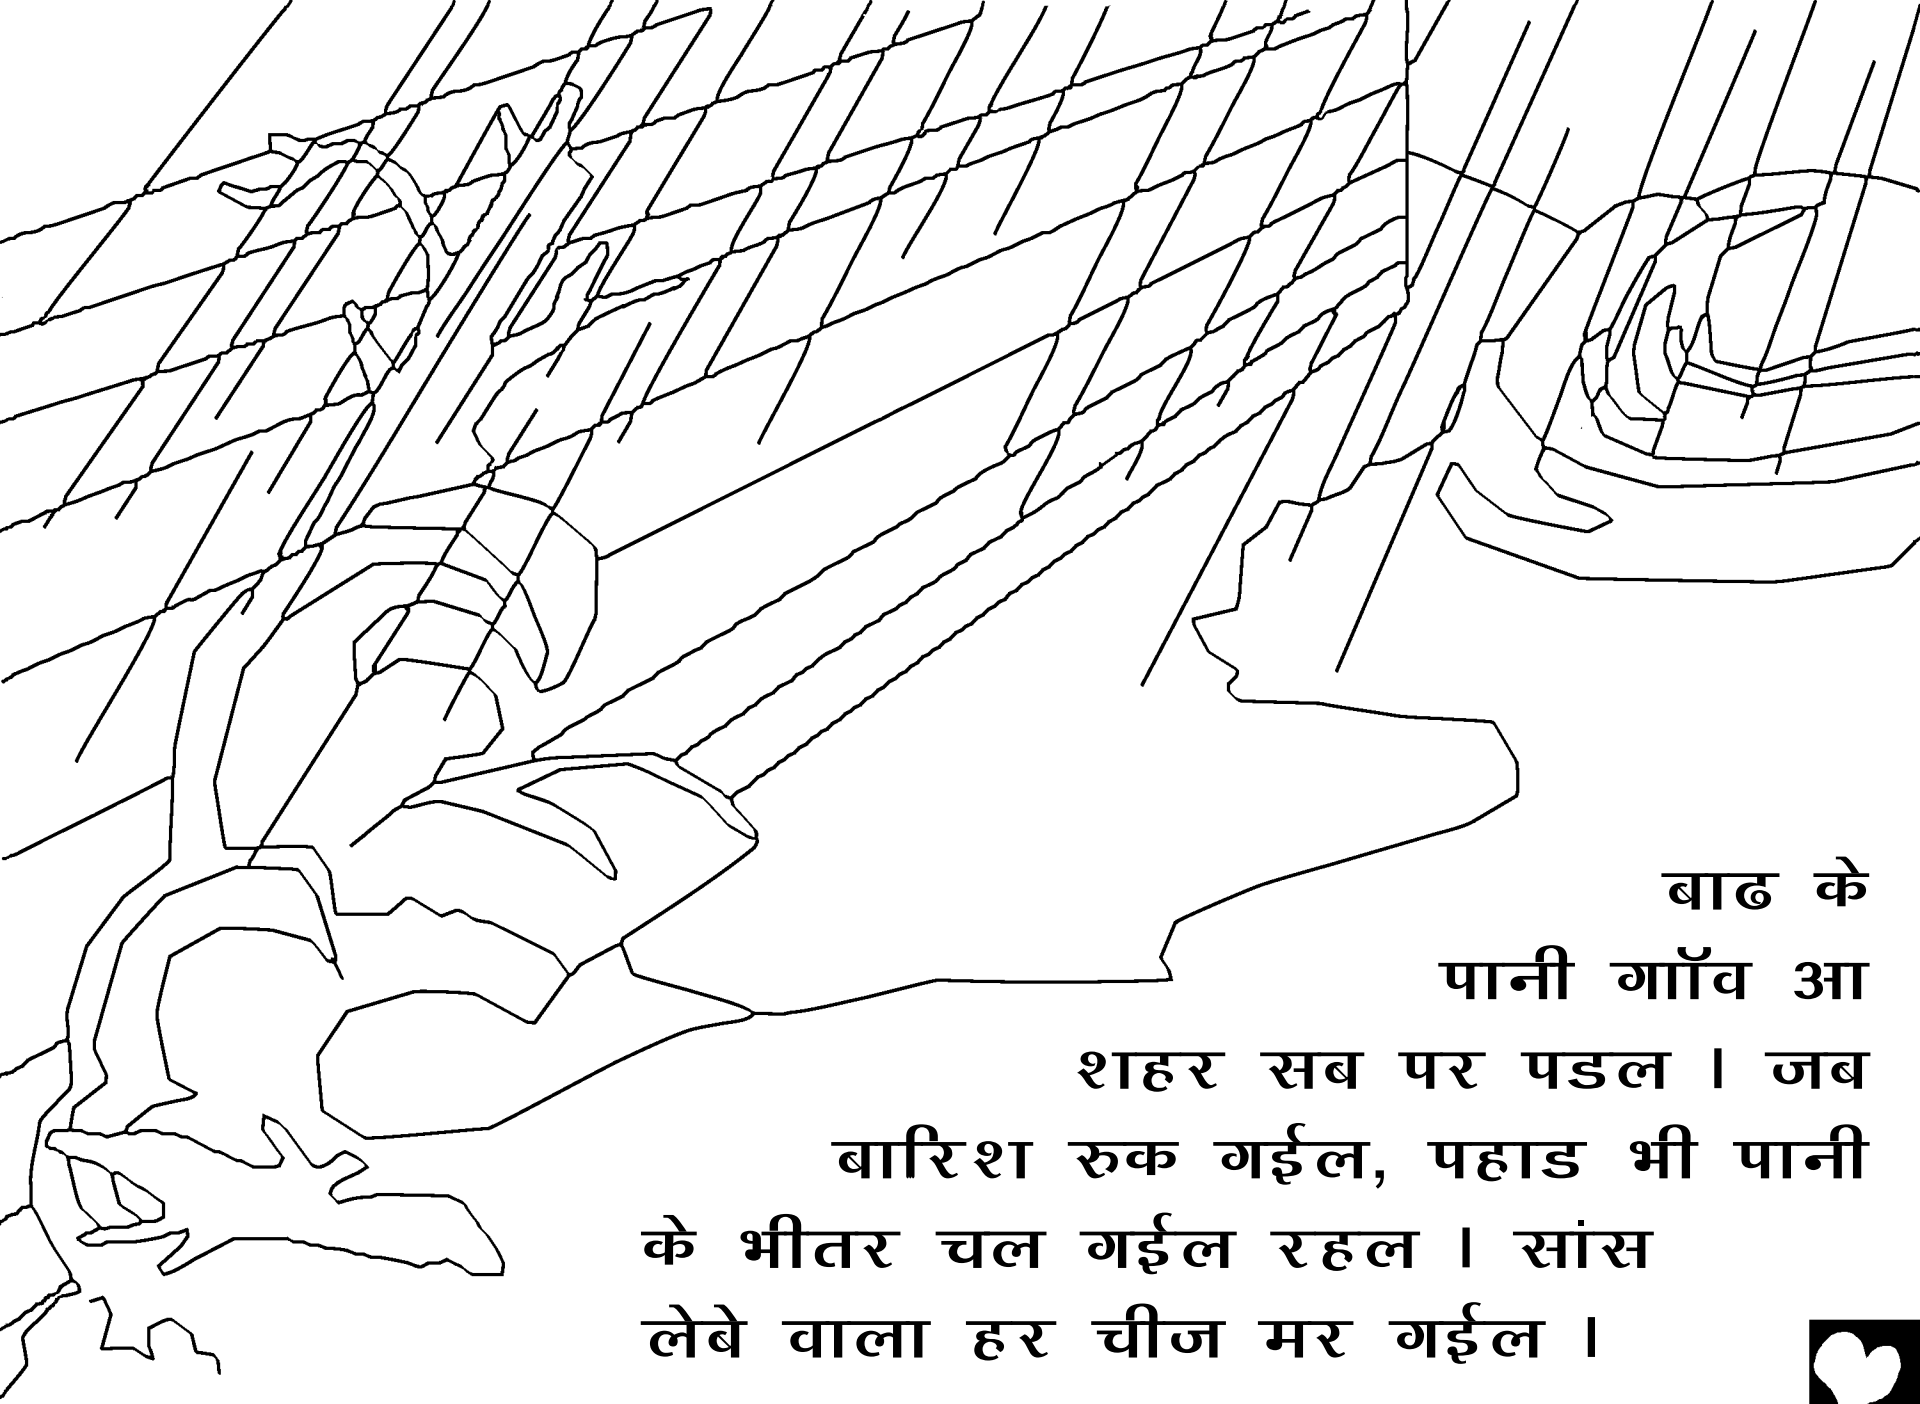 बाढ के
पानी गाॉव आ
शहर सब पर पडल । जब
बारिश रुक गईल, पहाड भी पानी
के भीतर चल गईल रहल । सांस
लेबे वाला हर चीज मर गईल ।